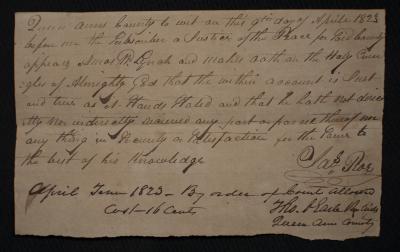 Queen Anns County to wit on this 9th day of April 1823
before me the Subscriber a Justice of the Peace for said County
appears Amos M. and makes oath on the Holy Evan
gels of Almighty God that the within account is Just
and true as it Stands Stated and that he hath not direc
tly nor indirectly received any part or parsel thereof nor
any thing in Security or Satisfaction for the Same to
the best of his Knowledge
Jas. Roe
April Term 1823 - By order of Court allowed
Cost - 16 Cents Tho. Earle
Queen Ann County